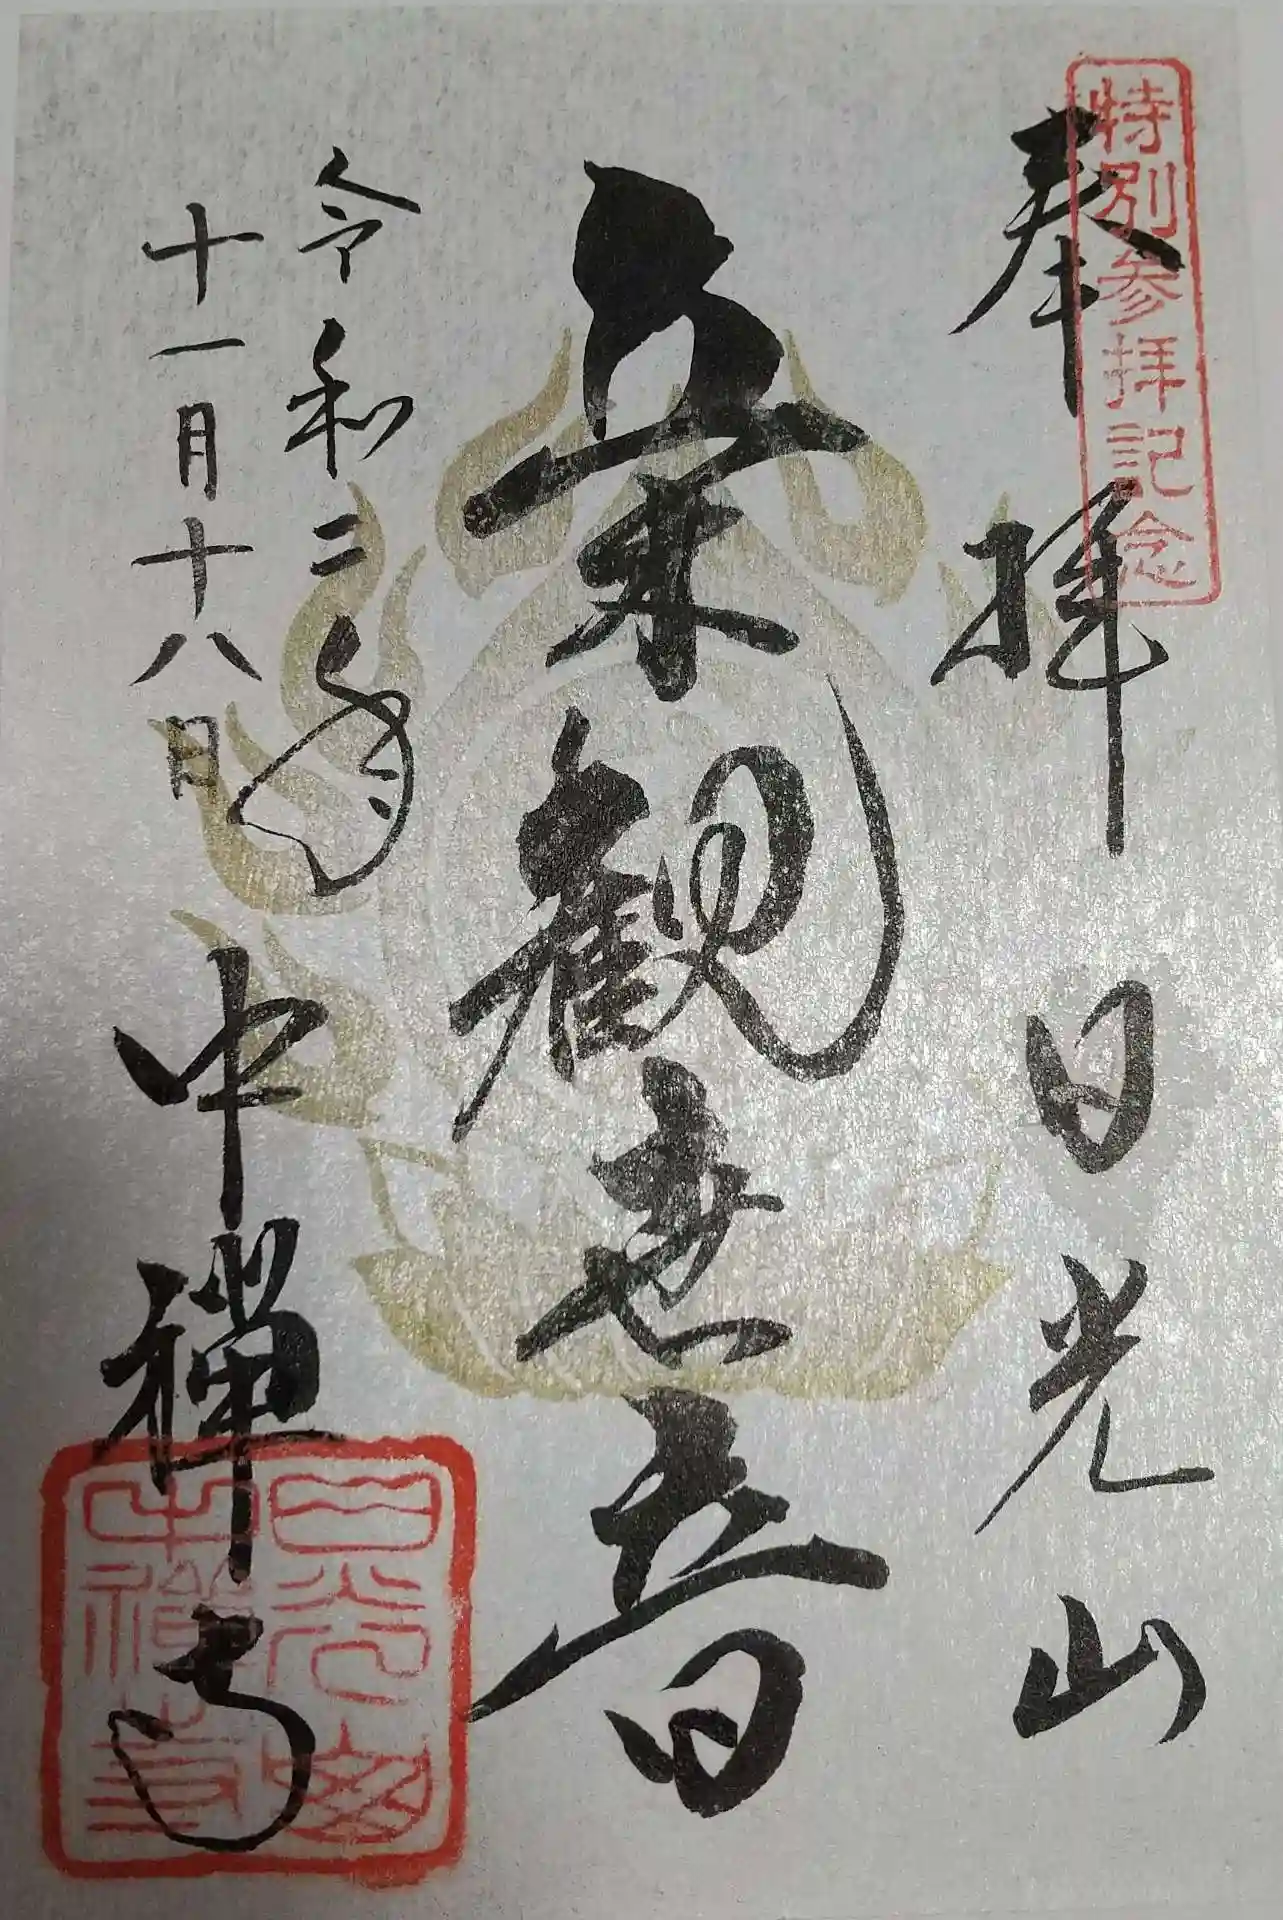 特別参拝記念
奉拝 日光山
立木観世音
令和二年
十一月十八日
中禅寺
日光山
中禅寺